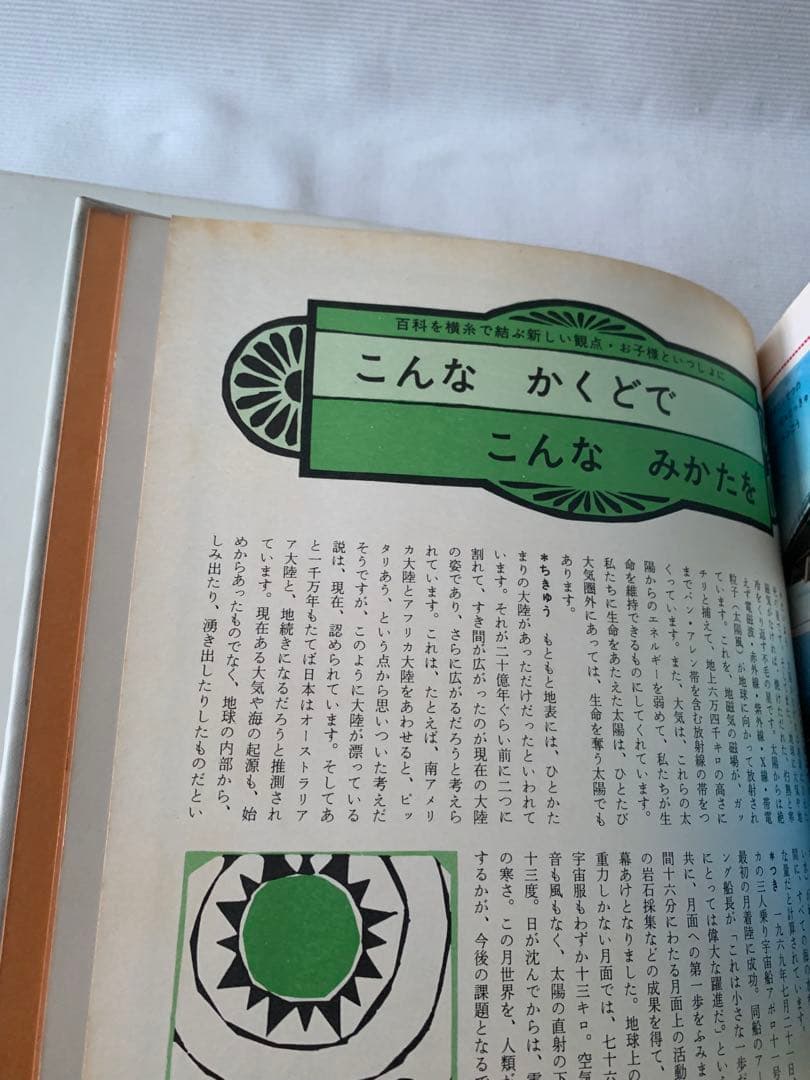 百科を横糸で結ぶ新しい観点・お子様といつしょに
こんな かくどで
こんな みかたを
えず電磁波・赤外線・紫外線・X線・帯電
粒子（太陽風）が地球に向かって放射され
ています。これを、地磁気の磁場が、ガッ
チリと捕えて、地上六万四千キロの高さに
までバン・アレン帯を含む放射線の帯をつ
くっています。また、大気は、これらの太
陽からのエネルギーを弱めて、私たちが生
命を維持できるものにしてくれています。
私たちに生命をあたえた太陽は、ひとたび
大気圏外にあっては、生命を奪う太陽でも
あります。
*ちきゅう もともと地表には、ひとかた
まりの大陸があっただけだったといわれて
います。それが二十億年ぐらい前に二つに
割れて、すき間が広がったのが現在の大陸
の姿であり、さらに広がるだろうと考えら
れています。これは、たとえば、南アメリ
カ大陸とアフリカ大陸をあわせると、ピッ
タリあう、という点から思いついた考えだ
そうですが、このように大陸が漂っている
説は、現在、認められています。そしてあ
と一千万年もたてば日本はオーストラリア
ア大陸と、地続きになるだろうと推測され
ています。現在ある大気や海の起源も、始
めからあったものでなく、地球の内部から、
しみ出たり、湧き出したりしたものだとい
な量だと計算されています。
*つき 一九六九年七月二十一日
カの三人乗り宇宙船アポロ十一号
最初の月着陸に成功。同船のアー
ング船長が「これは小さな一歩だ
にとっては偉大な躍進だ。」とい
共に、月面への第一歩をふみま
間十六分にわたる月面上の活動
の岩石採集などの成果を得て、
幕あけとなりました。地球上の
重力しかない月面では、七十六
宇宙服もわずか十三キロ。空気
音も風もなく、太陽の直射の下
十三度。日が沈んでからは、零
の寒さ。この月世界を、人類が
するかが、今後の課題となるで